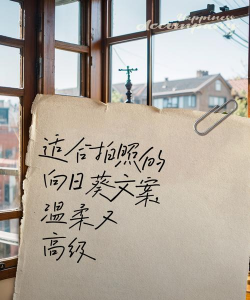 happiness
适合拍照的
向日葵文案
温柔又
高级